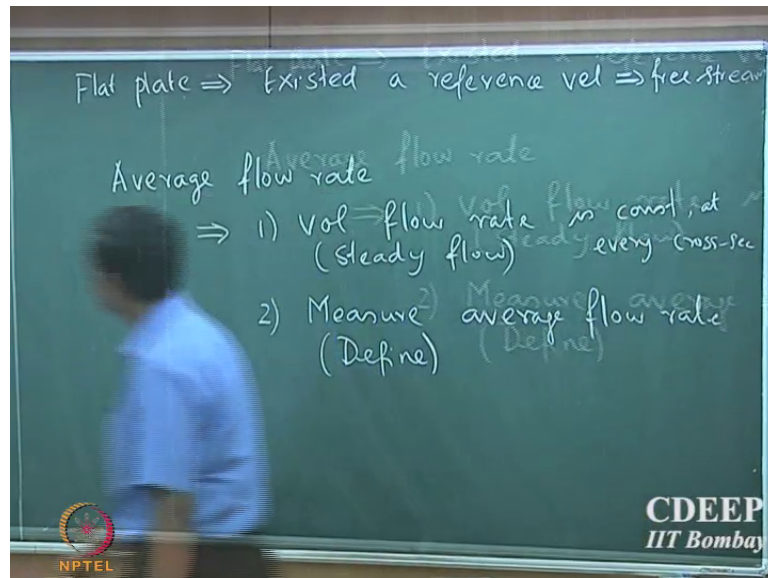 Flat plate ⇒ Existed a reference vel ⇒ free stream
Average flow rate
⇒ 1) Vol flow rate is const, at
(Steady flow) every cross-sec
2) Measure average flow rate
(Define)
NPTEL
CDEEP
IIT Bombay